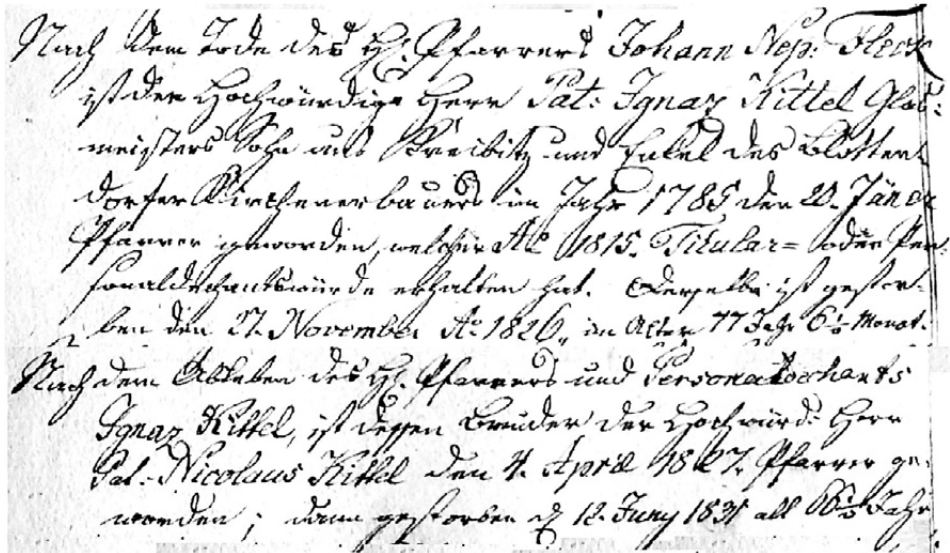 Nach dem Tode des H. Pfarrers Johann Nep: Fleck
ist der Hochwürdige Herr Pat: Ignaz Kittel Glas=
meisters Sohn aus Kreibitz und Enkel des Blotten=
dorfer Kirchenerbauers im Jahr 1785 den 22. Jäner
Pfarrer geworden, welcher Ao 1815. Titular= oder Per=
sonaldechantswürde erhalten hat. Derselbe ist gestor=
ben den 27. November Ao 1826, im Alter 77 Jahr 6½ Monat.
Nach dem Ableben des H. Pfarrers und Personaldechants
Ignaz Kittel, ist dessen Bruder der Hochwürd: Herr
Pat: Nicolaus Kittel den 4. April 1827. Pfarrer ge=
worden; dann gestorben d 12. Juny 1831 alt 66½ Jahr